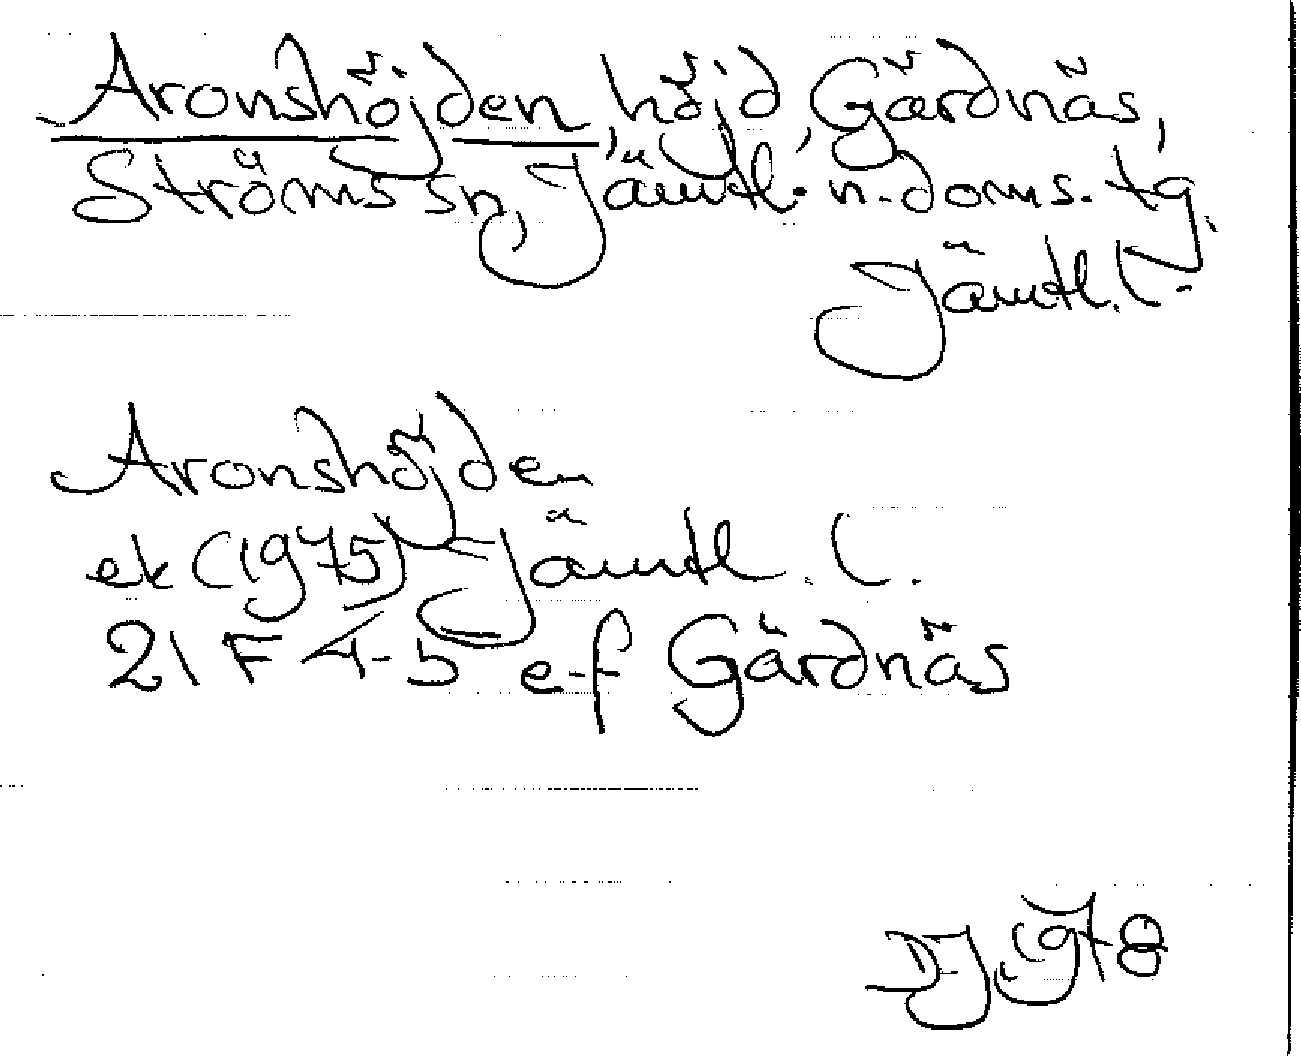 Aronshöjden, höjd, Gärdnäs,
Ströms sn, Jämtl. n. doms. tg.
Jämtl. l.
Aronshöjden
ek (1975) Jämtl. l.
21 F 4-5 e-f Gärdnäs
DJ 1978